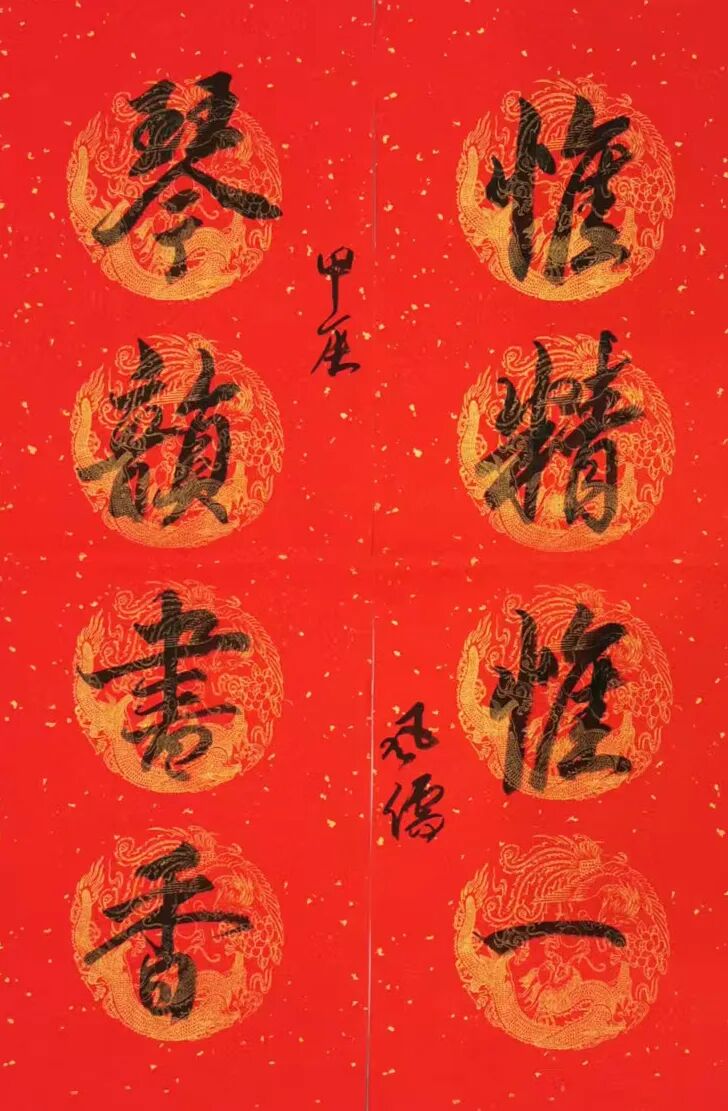 惟精惟一
琴韻書香
甲辰
风儒